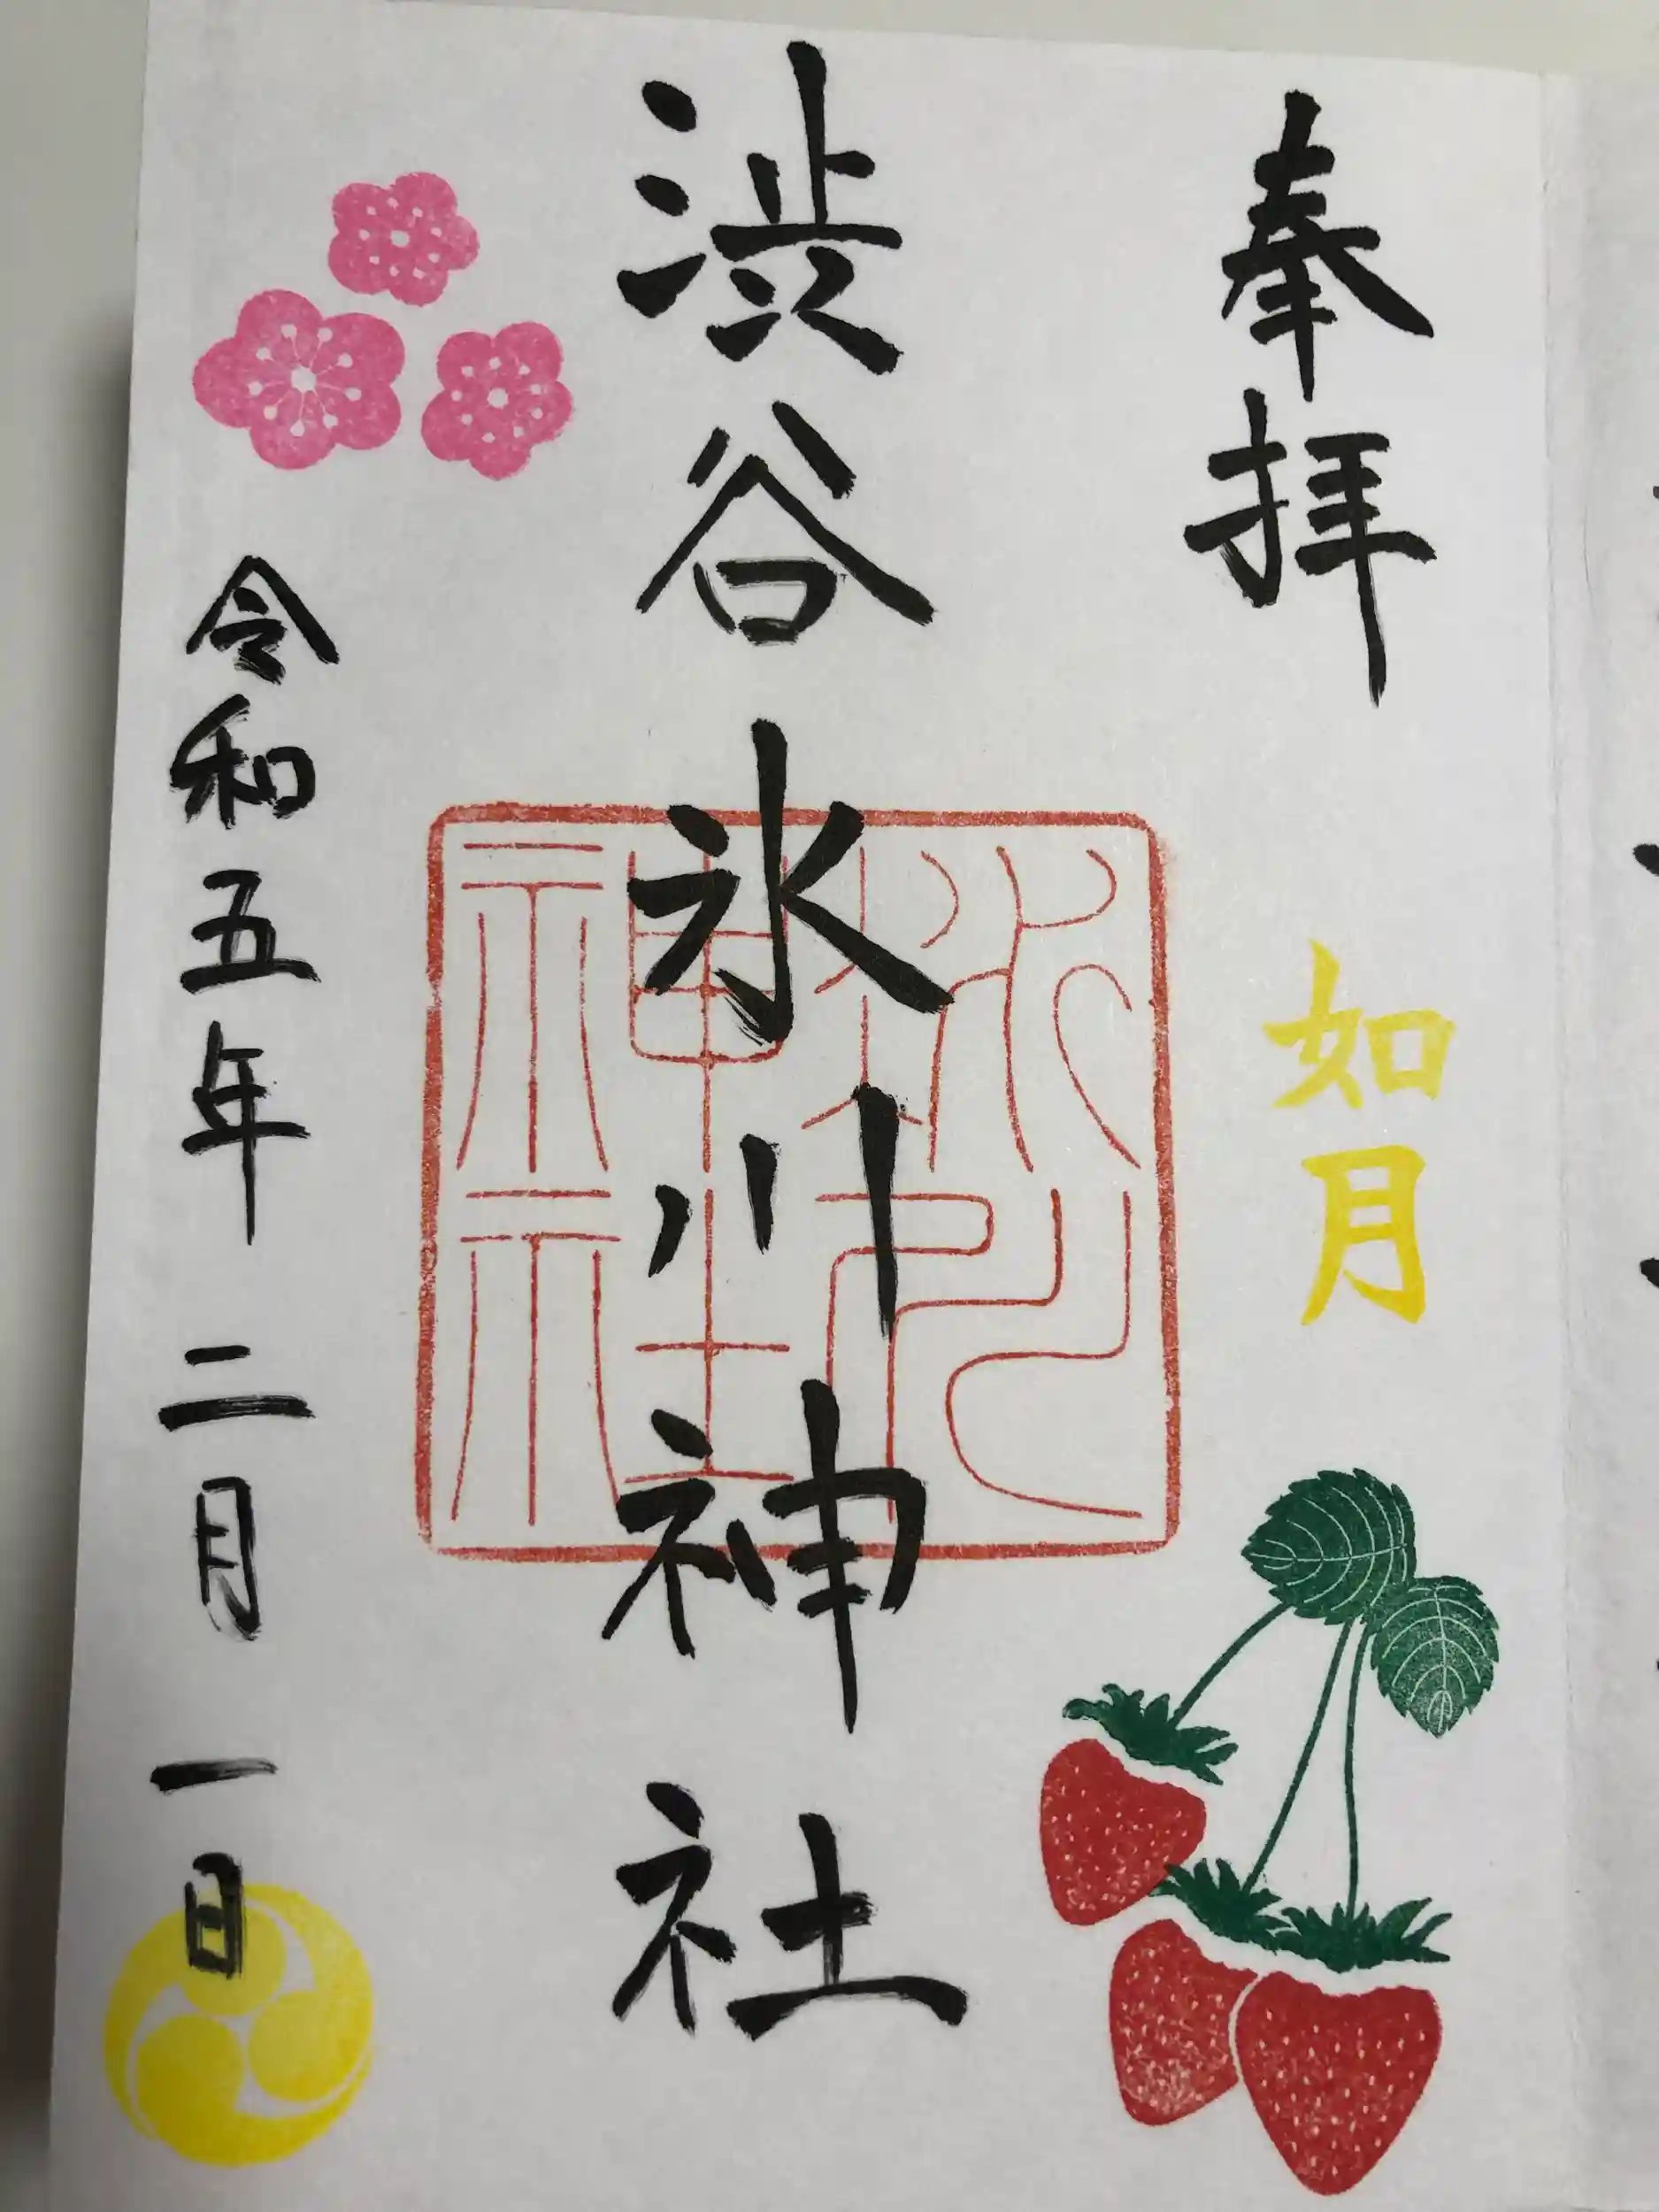 奉拝
如月
渋谷氷川神社
氷川神社
令和五年二月一日